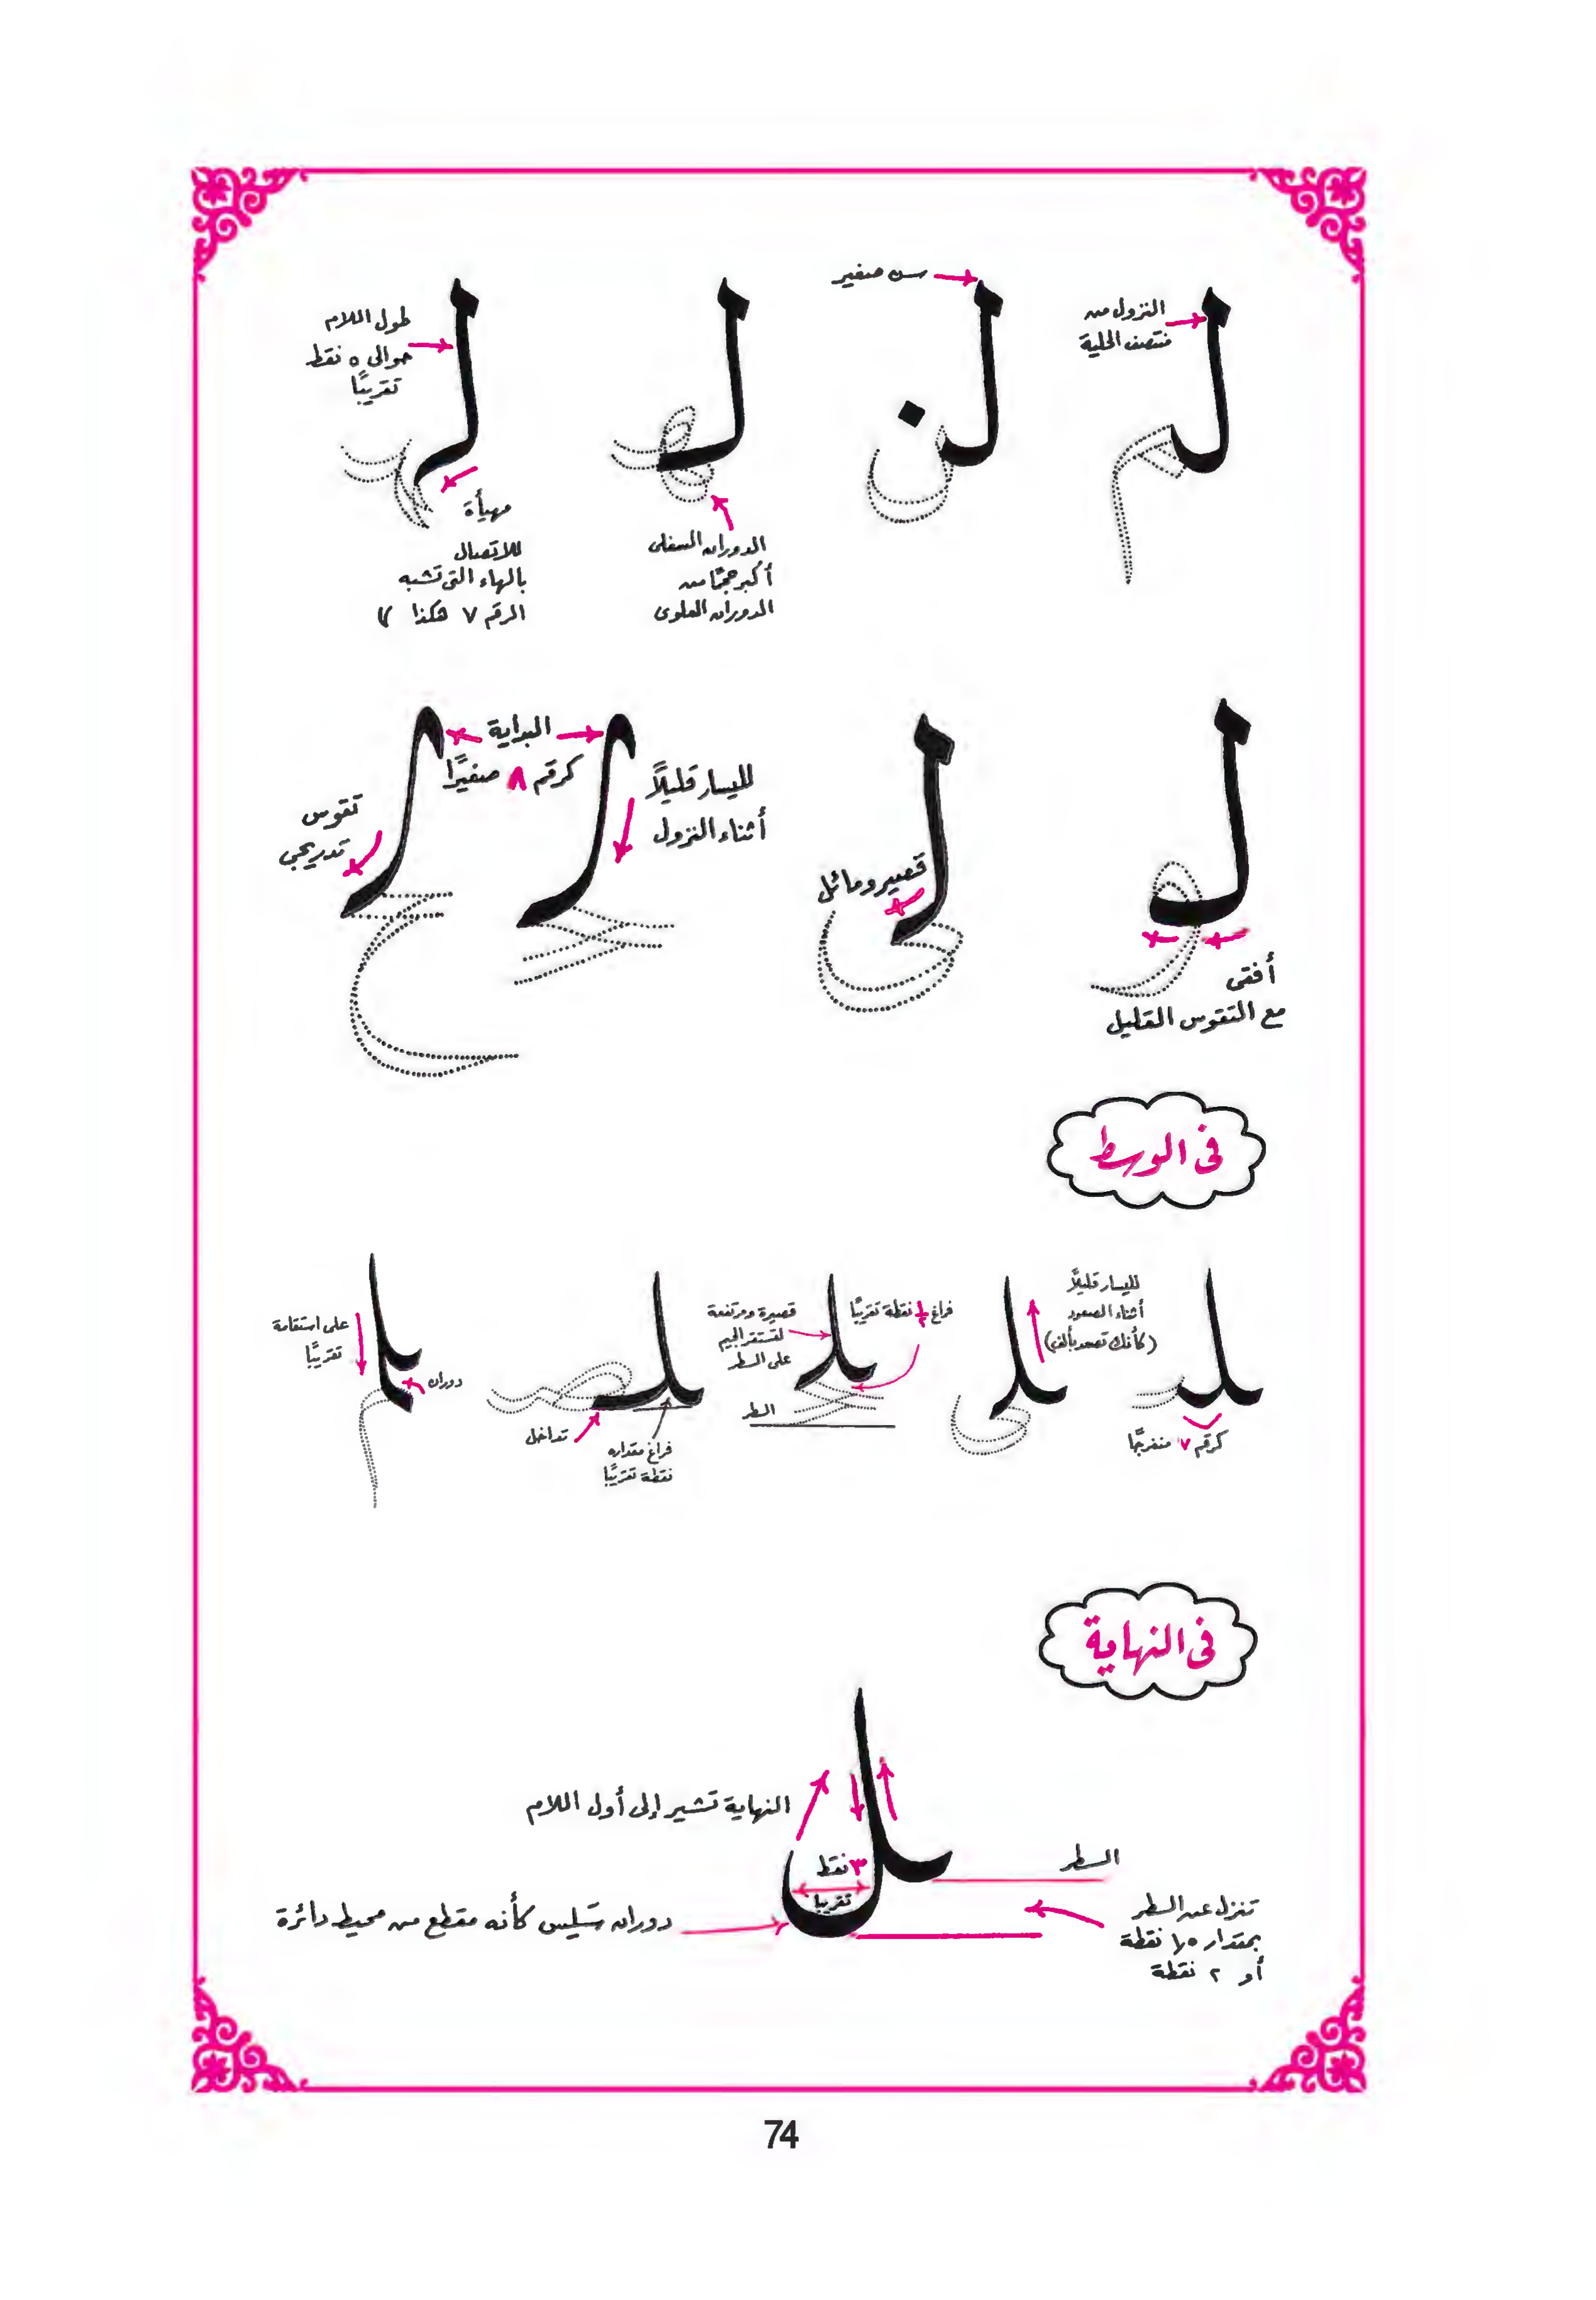 النزول من
منتصف الحلية
لم
سن صغير
لن
لهـ
الدوران السفلى
أكبر حجمًا من
الدوران العلوى
طول اللام
حوالى ٥ نقط
تقريبًا
لهـ
مهيأة
للاتصال
بالهاء التى تشبه
الرقم ٧ هكذا
لو
أفقى
مع التقوس القليل
لى
قصير ومائل
لليسار قليلاً
أثناء النزول
البداية
كرقم ٨ صغيرًا
لحـ
لح
تقوس
تدريجى
فى الوسط
كرقم ٧ منفرجًا
لليسار قليلاً
أثناء الصعود
(كأنك تصعد بألف)
فراغ ½ نقطة تقريبًا
قصيرة ومرتفعة
لتستقر الجيم
على السطر
السطر
فراغ مقداره
نقطة تقريبًا
تداخل
على استقامة
تقريبًا
دوران
فى النهاية
النهاية تشير إلى أول اللام
٣ نقط
تقريبا
السطر
دوران سَلِيس كأنه مقطع من محيط دائرة
تنزل عن السطر
بمقدار ١٫٥ نقطة
أو ٢ نقطة
74